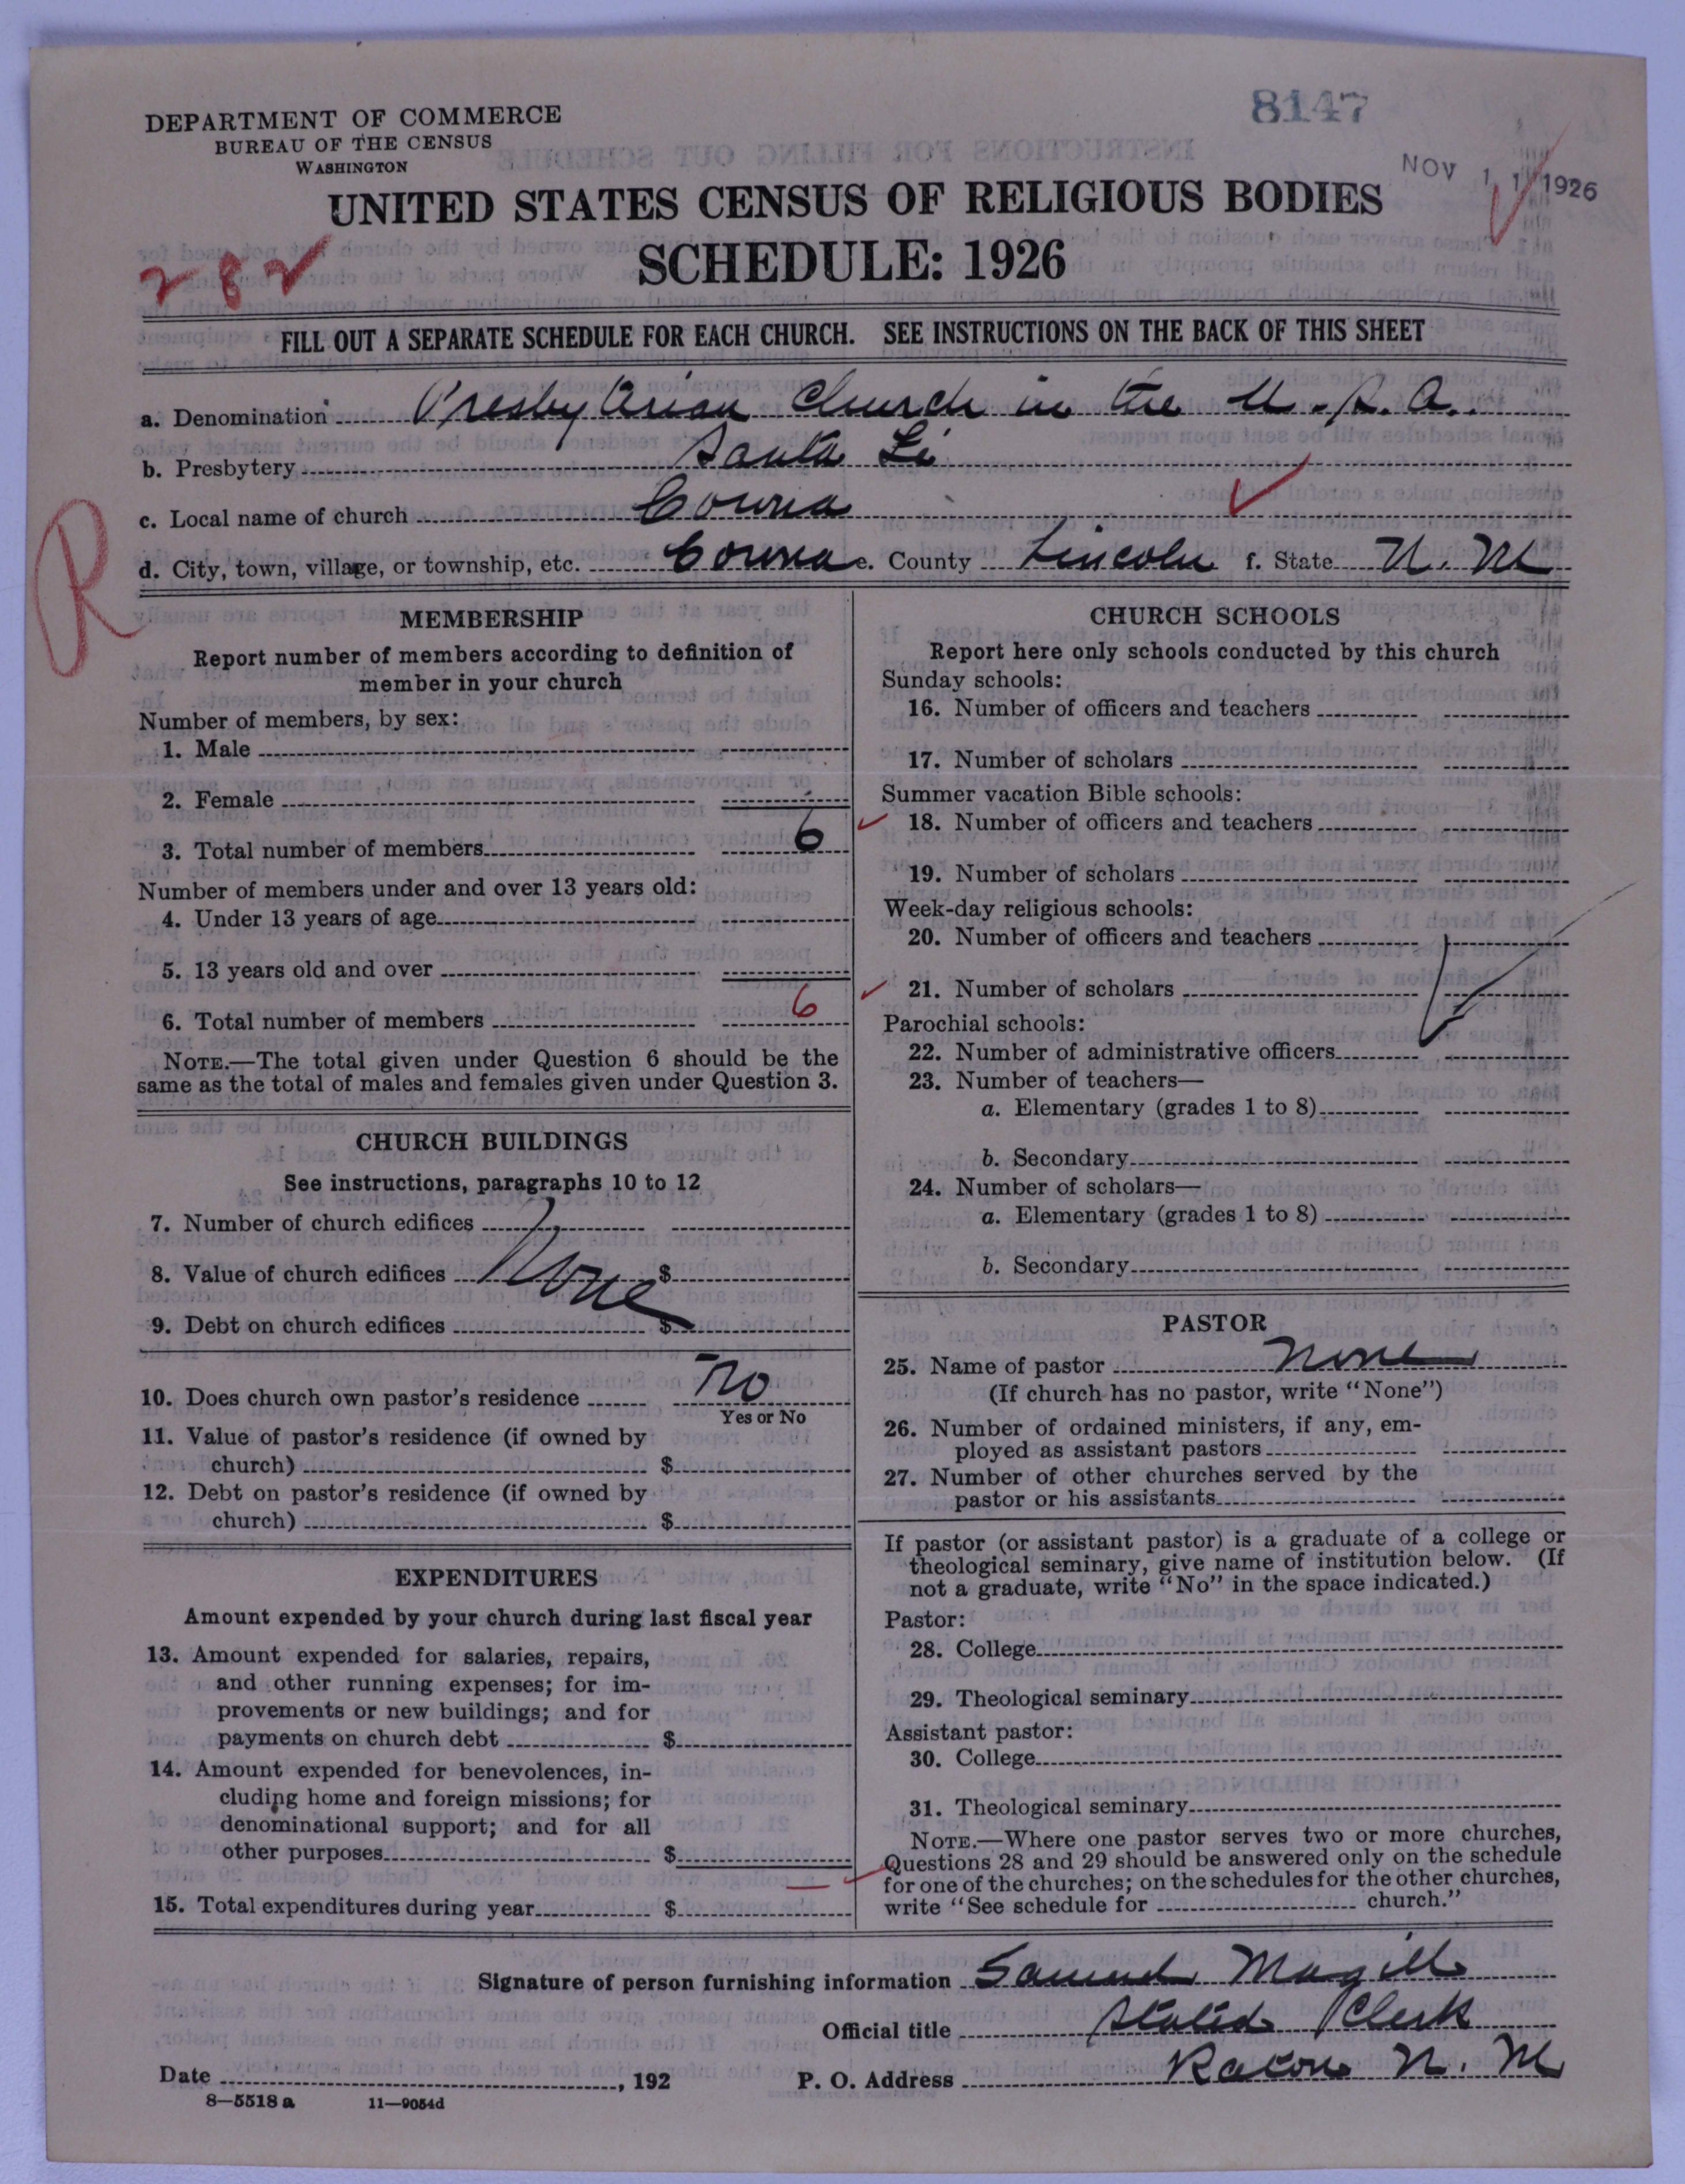 8147
DEPARTMENT OF COMMERCE
BUREAU OF THE CENSUS
WASHINGTON
NOV 1 1 1926
UNITED STATES CENSUS OF RELIGIOUS BODIES
SCHEDULE: 1926
282
FILL OUT A SEPARATE SCHEDULE FOR EACH CHURCH. SEE INSTRUCTIONS ON THE BACK OF THIS SHEET
a. Denomination Presbyterian Church in the U.S.A.
b. Presbytery Santa Fe
c. Local name of church Corona
d. City, town, village, or township, etc. Corona e. County Lincoln f. State N. M
R
MEMBERSHIP
Report number of members according to definition of
member in your church
Number of members, by sex:
1. Male
2. Female
3. Total number of members 6
Number of members under and over 13 years old:
4. Under 13 years of age
5. 13 years old and over
6. Total number of members 6
NOTE.—The total given under Question 6 should be the
same as the total of males and females given under Question 3.
CHURCH BUILDINGS
See instructions, paragraphs 10 to 12
7. Number of church edifices
8. Value of church edifices None $
9. Debt on church edifices $
10. Does church own pastor's residence No
Yes or No
11. Value of pastor's residence (if owned by
church) $
12. Debt on pastor's residence (if owned by
church) $
EXPENDITURES
Amount expended by your church during last fiscal year
13. Amount expended for salaries, repairs,
and other running expenses; for im-
provements or new buildings; and for
payments on church debt $
14. Amount expended for benevolences, in-
cluding home and foreign missions; for
denominational support; and for all
other purposes $
15. Total expenditures during year $
CHURCH SCHOOLS
Report here only schools conducted by this church
Sunday schools:
16. Number of officers and teachers
17. Number of scholars
Summer vacation Bible schools:
18. Number of officers and teachers
19. Number of scholars
Week-day religious schools:
20. Number of officers and teachers
21. Number of scholars
Parochial schools:
22. Number of administrative officers
23. Number of teachers—
a. Elementary (grades 1 to 8)
b. Secondary
24. Number of scholars—
a. Elementary (grades 1 to 8)
b. Secondary
PASTOR
25. Name of pastor None
(If church has no pastor, write "None")
26. Number of ordained ministers, if any, em-
ployed as assistant pastors
27. Number of other churches served by the
pastor or his assistants
If pastor (or assistant pastor) is a graduate of a college or
theological seminary, give name of institution below. (If
not a graduate, write "No" in the space indicated.)
Pastor:
28. College
29. Theological seminary
Assistant pastor:
30. College
31. Theological seminary
NOTE.—Where one pastor serves two or more churches,
Questions 28 and 29 should be answered only on the schedule
for one of the churches; on the schedules for the other churches,
write "See schedule for church."
Signature of person furnishing information Samuel Magill
Official title Stated Clerk
Date , 192 P. O. Address Raton N. M
8—5518 a 11—9054d